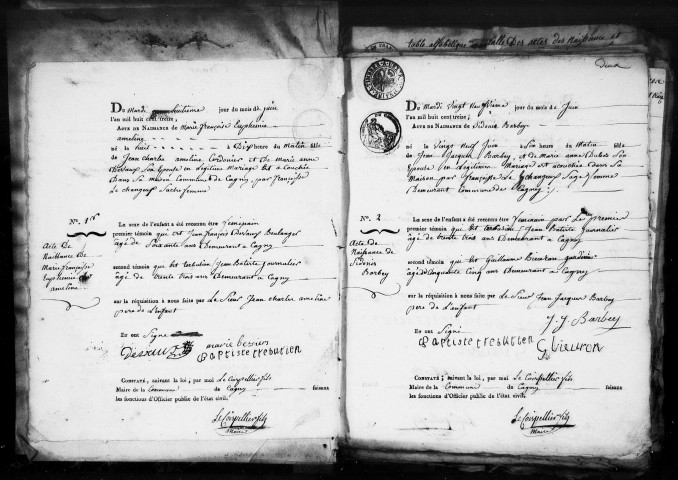 Du Mardi huitieme jour du mois de juin
l'an mil huit cent treize,
ACTE DE NAISSANCE de Marie françoise Euphemie
ameline
né le huit à Dix heures du Matin fille
de Jean Charles ameline Cordonier et De Marie anne
Desvaux Son Epouse en Legitime Mariage Et accouchée
Dans Sa maison Commune de Cagny, par françoise
Le changeux Sachefemme
N.º 1er
Acte De
Naissance De
Marie françoise
Euphemie
ameline
Le sexe de l'enfant a été reconnu être femenain
premier témoin qui est Jean françois Desvaux Boulanger
âgé de Soixante ans Demeurant a Cagny
second témoin qui est trebutien Jean Batiste journalier
âgé de trente trois ans Demeurant a Cagny
sur la réquisition à nous faite par Le Sieur Jean Charles ameline
pere de L'enfant
Et ont Signé
Desvaux
marie
Baptiste trebutien
CONSTATÉ, suivant la loi, par moi Le Coispellier fils
Maire de la Commune de Cagny faisant
les fonctions d'Officier public de l'état civil.
Le Coispellier fils
Maire
table alfabetique des actes des Naissance
Deux
Du Mardi Vingt Neufvieme jour du mois de Juin
l'an mil huit cent treize;
ACTE DE NAISSANCE de Sidonie Barbey
né le Vingt Neuf Juin à Six heures du Matin fille
de Jean Jacques Barbey et de Marie anne Dubois Son
Epouse en Legitime Mariage Est accouchée dans Sa
Maison par françoise Le Changeux Sage femme
Demeurant Commune de Cagny
N.º 2
Acte De
Naissance de
Sidonie
Barbey
Le sexe de l'enfant a été reconnu être femenain par Le premier
premier témoin qui est trebutien Jean Batiste journalier
âgé de trente trois ans Demeurant a Cagny
second témoin qui est Guillaume
âgé de Cinquante Cinq ans Demeurant a Cagny
sur la réquisition à nous faite par Le Sieur Jean Jacques Barbey
pere de L'enfant
J. J. Barbey
Et ont Signé
Baptiste trebutien
CONSTATÉ, suivant la loi, par moi Le Coispellier fils
Maire de la Commune de Cagny faisant
les fonctions d'Officier public de l'état civil.
Le Coispellier fils
Maire